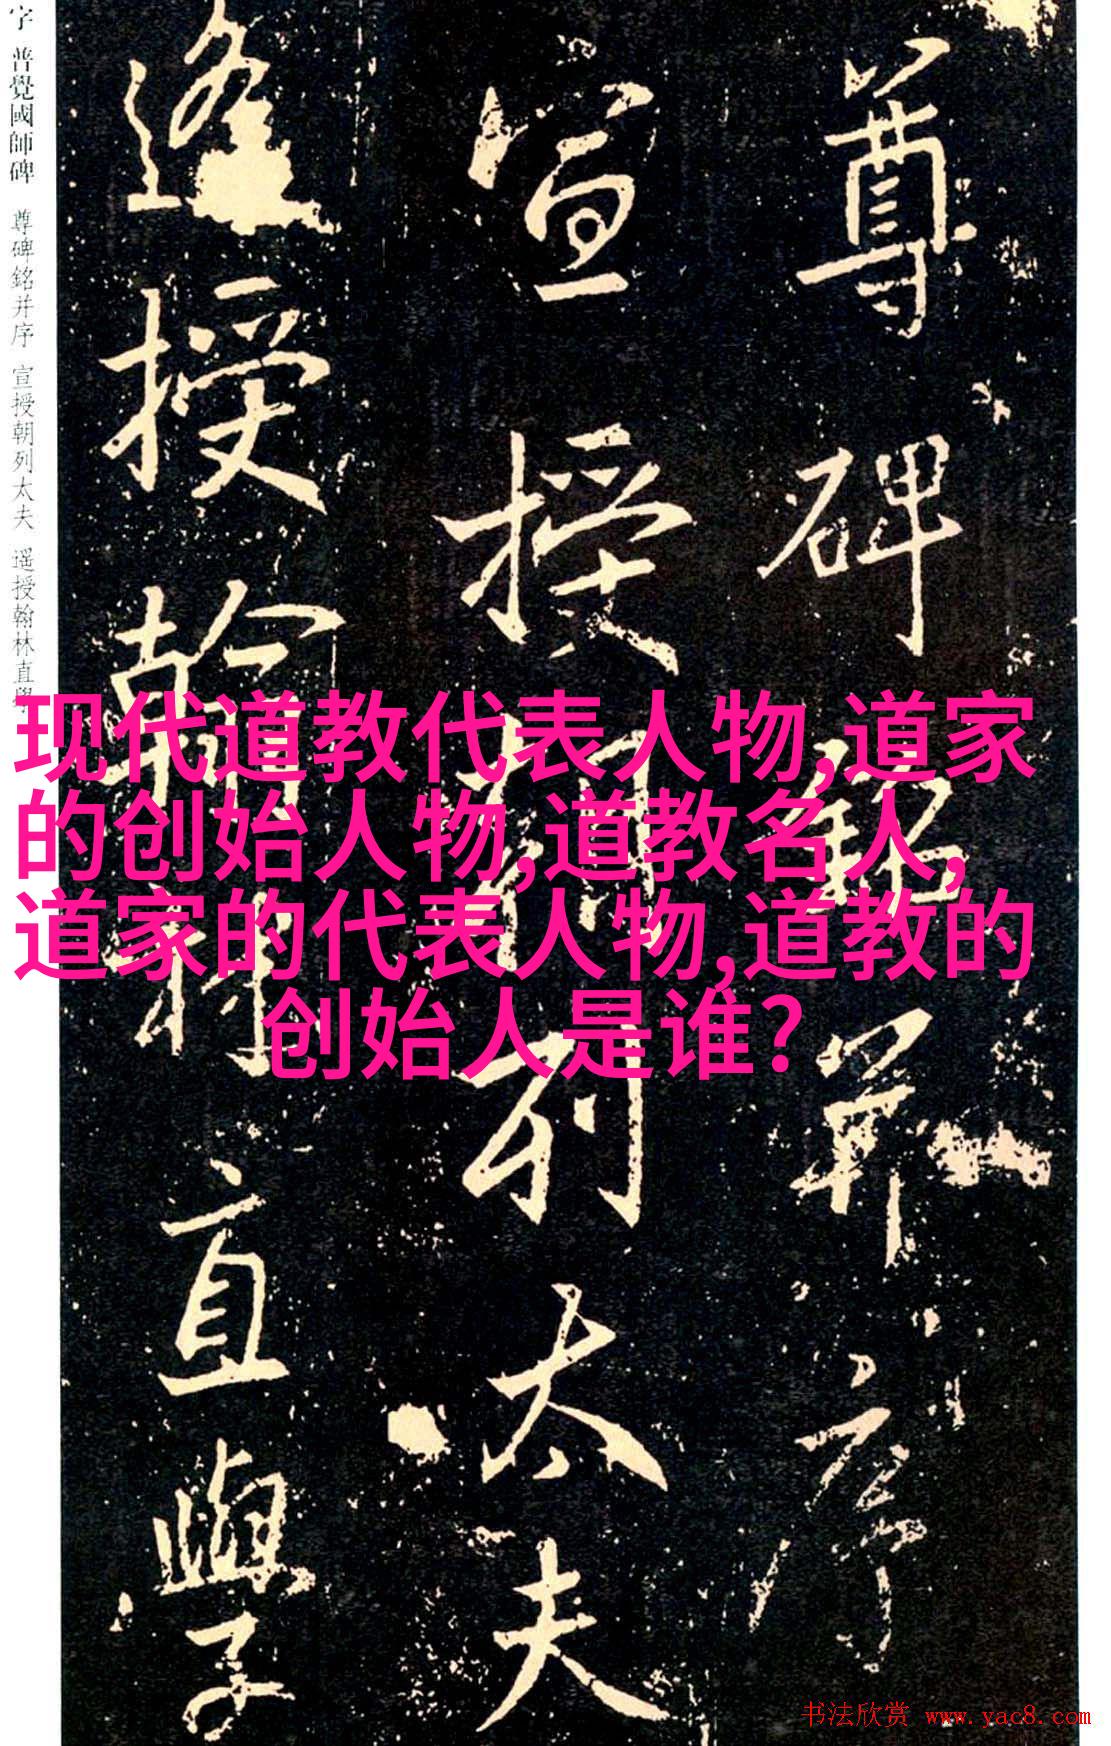 字 普覺國師碑 尊碑銘并序 宣授朝列太夫 遥授翰林直學
尊碑銘并序
宣授朝列太夫
遙授翰林直學
现代道教代表人物,道家
的创始人物,道教名人,
道家的代表人物,道教的
创始人是谁?
书法欣赏 www.yac8.com